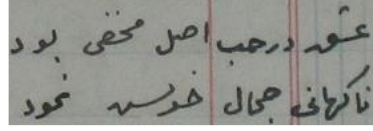 عشق در حب اصل مخفی بود
ناگهانی جمال خویش نمود